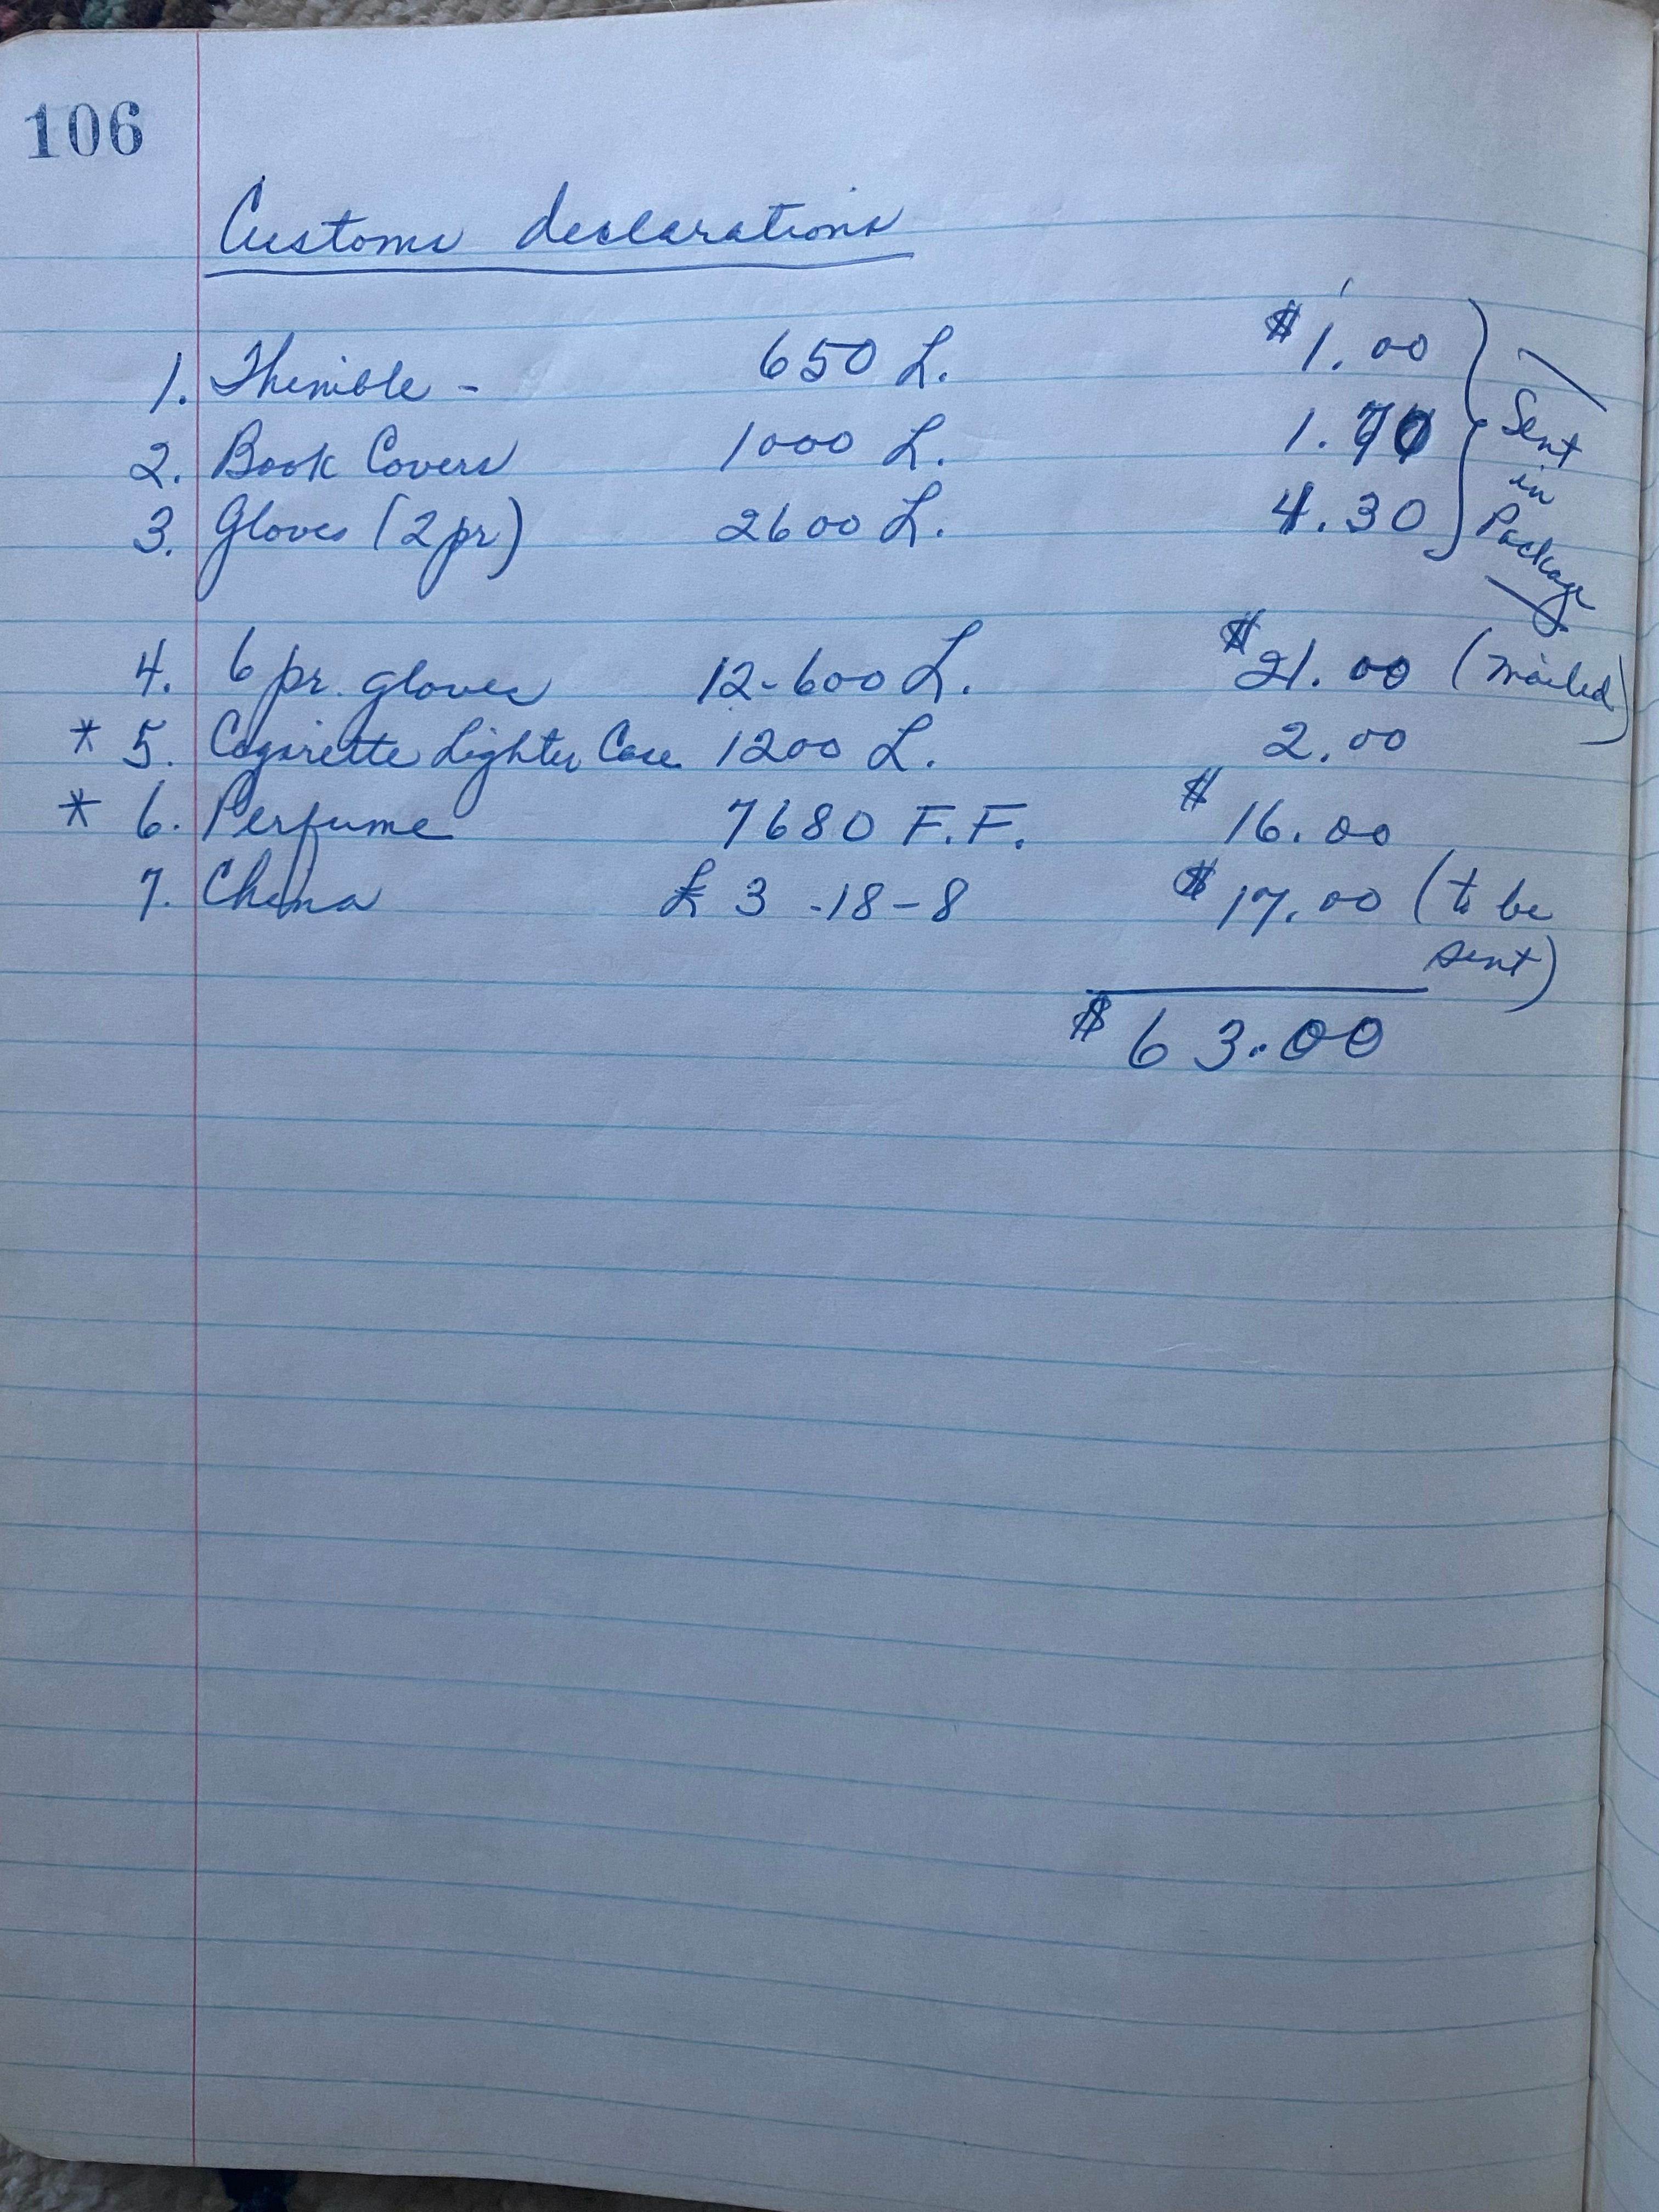 106
Customs declarations
1. Thimble - 650 L. $1.00
2. Book Covers 1000 L. 1.70
3. Gloves (2 pr) 2600 L. 4.30
Sent
in
Package
4. 6 pr. gloves 12-600 L. $21.00 (mailed)
* 5. Cigarette Lighter Case 1200 L. 2.00
* 6. Perfume 7680 F.F. $16.00
7. China £ 3 -18-8 $17.00 (to be
sent)
$63.00